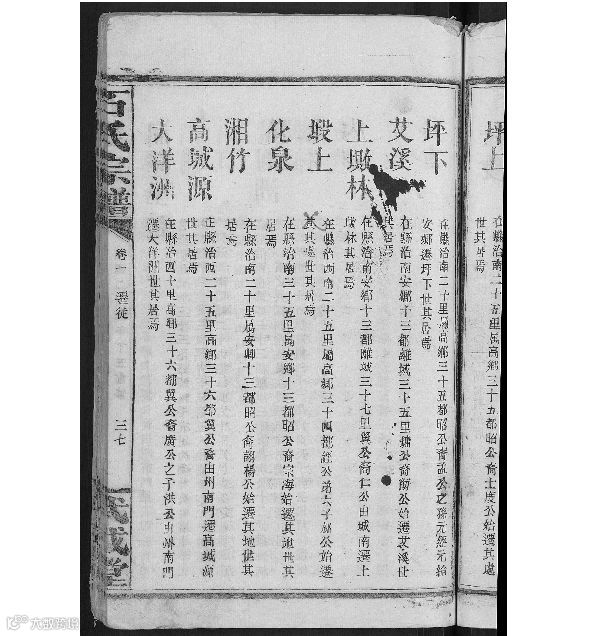 坪上
在縣治南二十五里屬高鄉三十五都昭公裔士度公始遷其處
世其居焉
坪下
在縣治南二十里屬高鄉三十五都昭公裔 公之孫元 元給
安鄉遷坪下世其居焉
艾溪
在縣治南安鄉十三都離城三十五里 公裔 公始遷艾溪世
其居焉
上墩林
在縣治南安鄉十三都離城三十七里冀公裔仁公由城南遷上
林其居焉
塅上
在縣治南二十五里屬高鄉三十四都 公 六子 公始遷
其 世其居焉
化泉
在縣治南三十五里屬安鄉十三都昭公裔宗海始遷其地世其
居焉
湘竹
在縣治南二十里屬安鄉十三都昭公裔 楊公始遷其地世其
居焉
高城源
在縣治西二十五里高鄉三十六都冀公裔由州南門遷高城源
世其居焉
大洋洲
在縣治西十里高鄉三十六都冀公裔廣公之子洪公由 南門
遷大洋洲世其居焉
石氏宗譜
卷一 遷徙
三七
武威堂
大家跨境